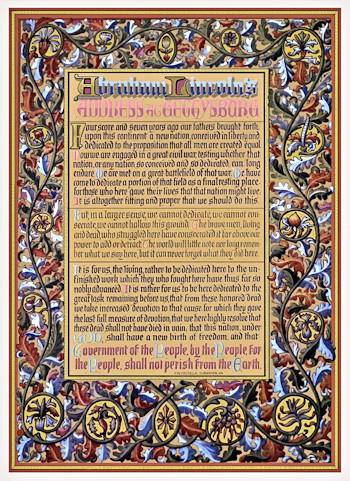 Abraham Lincoln's
ADDRESS at GETTYSBURG
Four score and seven years ago our fathers brought forth
upon this continent a new nation, conceived in liberty and
dedicated to the proposition that all men are created equal.
Now we are engaged in a great civil war, testing whether that
nation, or any nation, so conceived and so dedicated, can long
endure. We are met on a great battlefield of that war. We have
come to dedicate a portion of that field as a final resting place
for those who here gave their lives that that nation might live.
It is altogether fitting and proper that we should do this.
But, in a larger sense, we cannot dedicate, we cannot con-
secrate, we cannot hallow this ground. The brave men, living
and dead, who struggled here have consecrated it far above our
power to add or detract. The world will little note, nor long remem-
ber what we say here, but it can never forget what they did here.
It is for us, the living, rather to be dedicated here to the un-
finished work which they who fought here have thus far so
nobly advanced. It is rather for us to be here dedicated to the
great task remaining before us, that from these honored dead
we take increased devotion to that cause for which they gave
the last full measure of devotion, that we here highly resolve that
these dead shall not have died in vain, that this nation, under
GOD, shall have a new birth of freedom, and that
Government of the People, by the People, for
the People, shall not perish from the Earth.